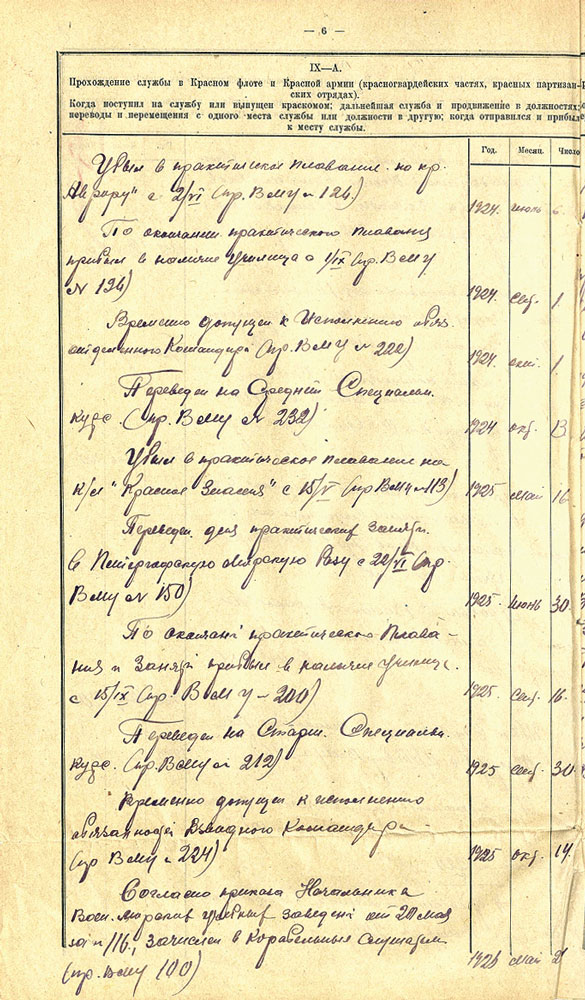 — 6 —
IX—А.
Прохождение службы в Красном флоте и Красной армии (красногвардейских частях, красных партизан-
ских отрядах).
Когда поступил на службу или выпущен краскомом; дальнейшая служба и продвижение в должностях;
переводы и перемещения с одного места службы или должности в другую; когда отправился и прибыл
к месту службы.
Год. Месяц. Число
Убыл в практическое плавание на кр.
"Аврору" с 2/VI (пр. ВМУ № 126) 1924. июль 6
По окончании практического плавания
прибыл в наличие Училища с 1/IX (пр. ВМУ
№ 196) 1924. Сент. 1
Временно допущен к исполнению обяз.
отделенного Командира (пр. ВМУ № 222) 1924 окт. 1
Переведен на Средний Специальн.
курс. (пр. ВМУ № 232) 1924 окт. 13
Убыл в практическое плавание на
к/л "Красное Знамя" с 15/V (пр ВМУ № 113) 1925 май 16
Переведен для практических занятий
в Петергофскую Базу с 22/VI (пр.
ВМУ № 150) 1925 июнь 30
По окончании практического Плава-
ния и Занятий прибыл в наличие Училища
с 15/IX (пр. ВМУ - 200) 1925 сент. 16.
Переведен на Старш. Специальн.
курс. (пр. ВМУ № 212) 1925 сент. 30
Временно допущен к исполнению
обязанностей Взводного Командира
(пр ВМУ № 224) 1925 окт. 14.
Согласно приказа Начальника
Воен. морских учебных заведений от 20 мая
за № 116, зачислен в Корабельные Слушатели
(пр. ВМУ 100) 1926 май 21